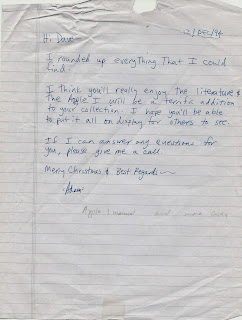 12/DEC/94
Hi Dave—
I rounded up everything That I could
find.
I think you'll really enjoy the literature &
The Apple I will be a terrific addition
to your collection. I hope you'll be able
to put it all on display for others to see.
If I can answer any questions for
you, please give me a call.
Merry Christmas & Best Regards—
Apple I manual and